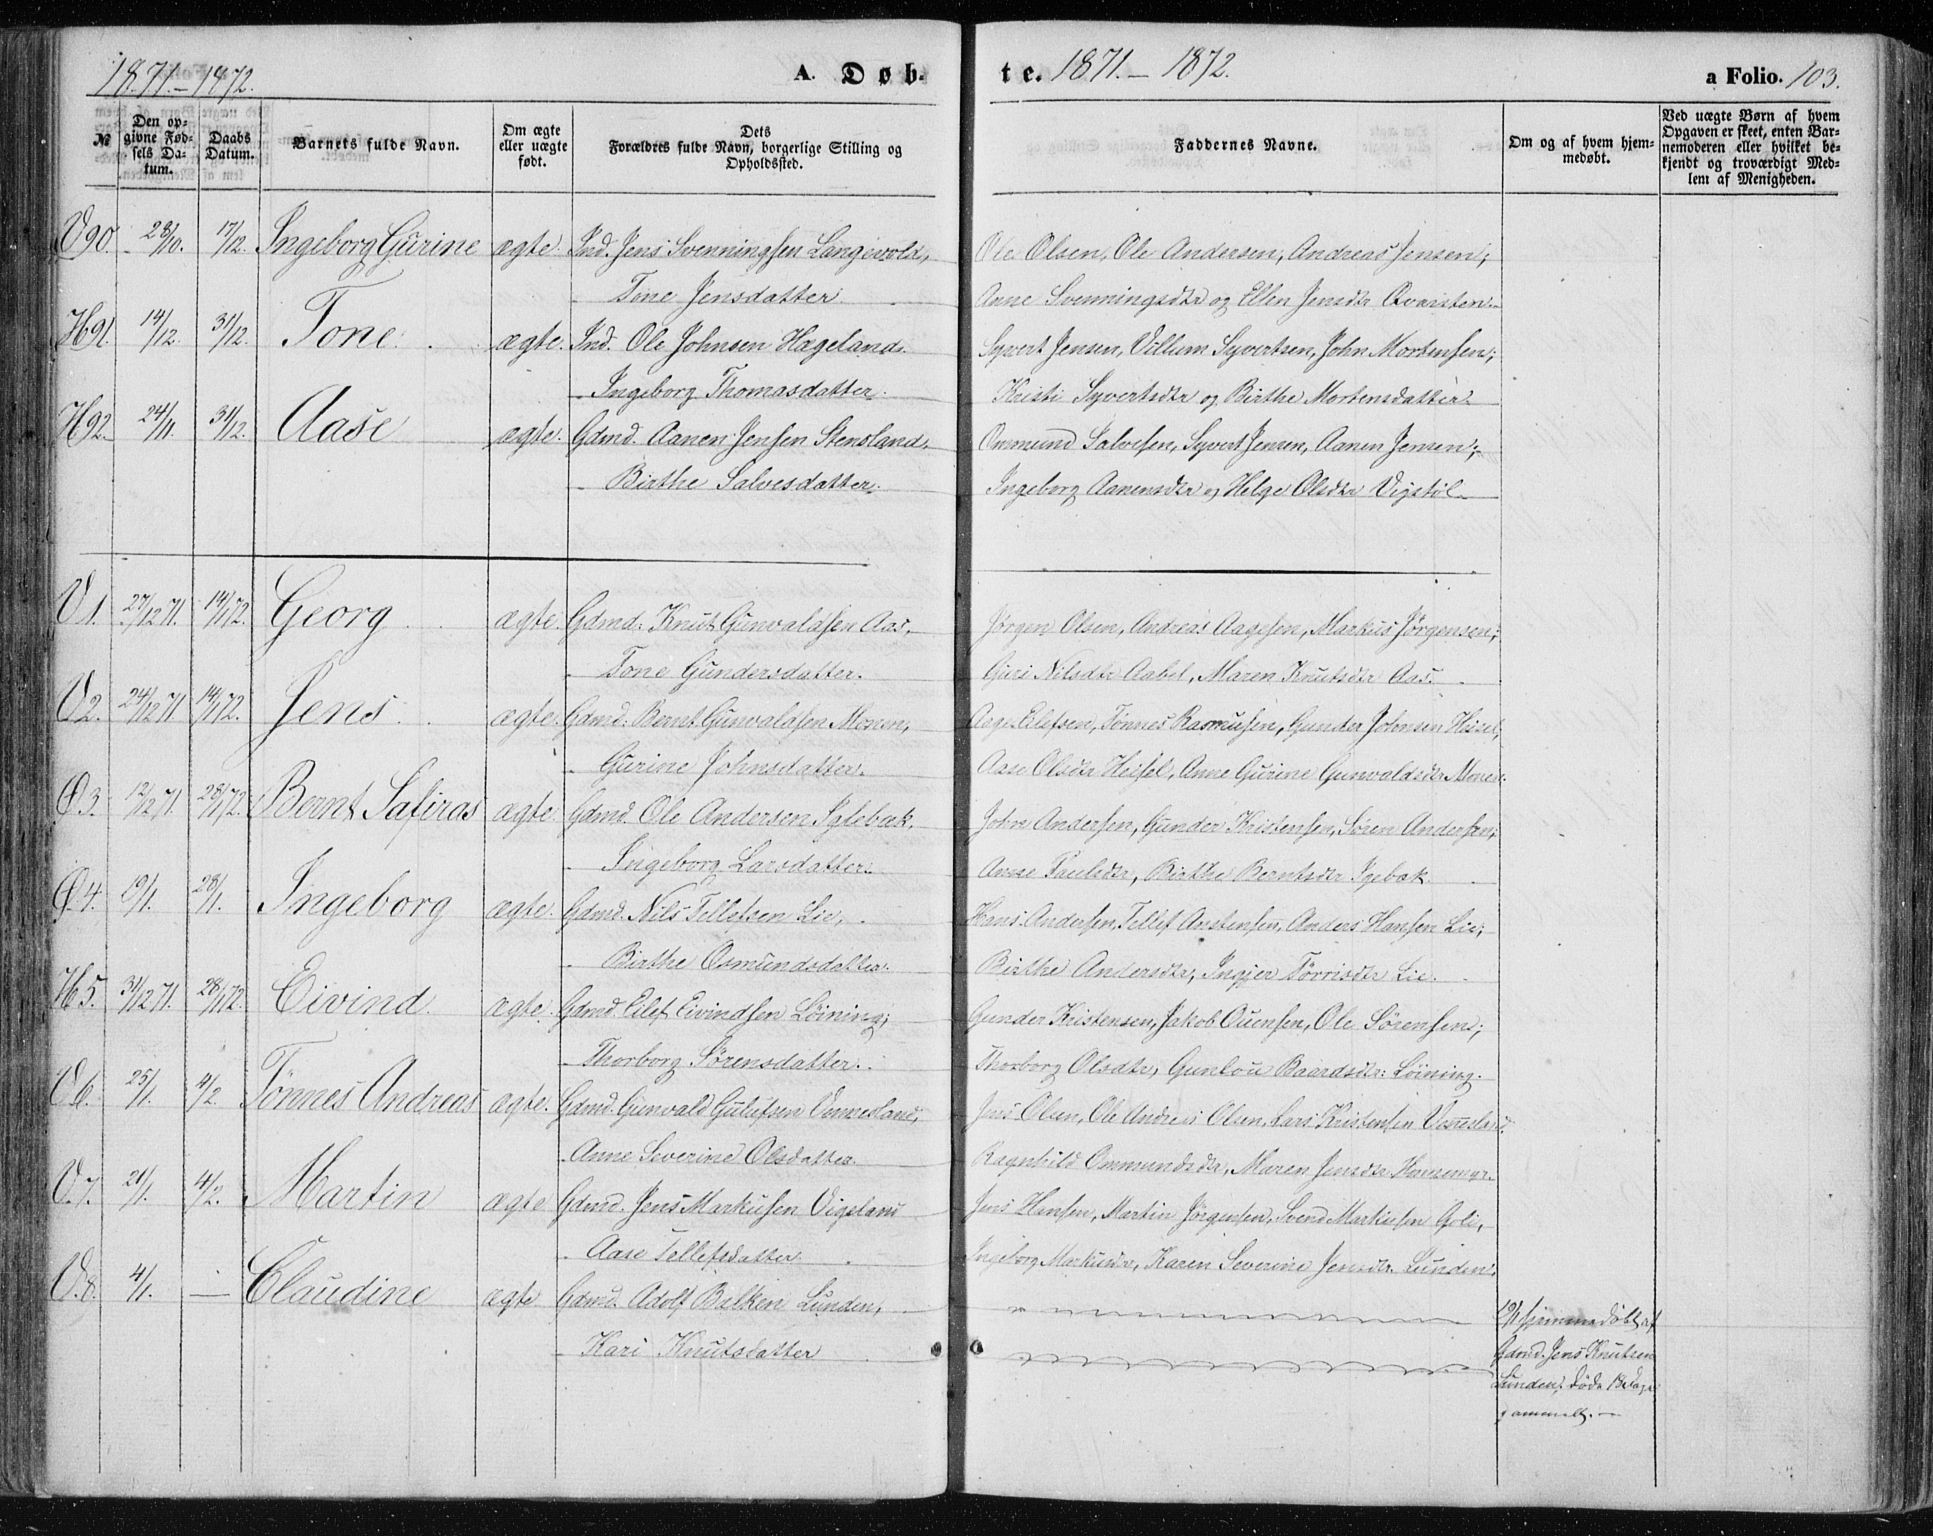 1871.-1872. A. Døb-
te. 1871.-1872. a Folio. 103.
№ Den opgivne Fødsels Datum. Daabs Datum. Barnets fulde Navn. Om ægte eller uægte født. Dets Forældres fulde Navn, borgerlige Stilling og Opholdssted. Faddernes Navne. Om og af hvem hjemmedøbt. Ved uægte Børn af hvem Opgaven er skeet, enten Barnemoderen eller hvilket bekjendt og troværdigt Medlem af Menigheden.
V90. 28/10. 17/12. Ingeborg Gurine ægte. Ind. Jens Svenningsen Langevold, Ole Olsen, Ole Andersen, Andreas Jensen;
Tine Jensdatter. Anne Svenningsdtr og Ellen Jensdtr Qvarsten.
H91. 14/12. 31/12. Tone. ægte. Ind. Ole Johnsen Hægeland. Syvert Jensen, Villum Syvertsen, John Mortensen;
Ingeborg Thomasdatter. Kristi Syvertsdtr og Birthe Mortensdatter.
H92. 24/11. 31/12. Aase ægte. Gdmd. Aanen Jensen Stensland, Ommund Salvesen, Syvert Jensen, Aanen Jensen;
Birthe Salvesdatter. Ingeborg Aanensdtr og Helge Olsdtr Vigstøl
V1. 27/12 71. 14/1 72. Georg ægte. Gdmd. Knut Gunvaldsen Aas, Jørgen Olsen, Andreas Aagesen, Markus Jørgensen;
Tone Gundersdatter. Guri Nilsdtr Aabel, Maren Knutsdtr Aas.
V2. 24/12 71 14/1 72. Jens. ægte. Gdmd. Bernt Gunvaldsen Moen, Aage Eilefsen, Tønnes Rasmusen, Gunder Johnsen Heisel,
Gurine Johnsdatter. Aase Olsdtr Heisel, Anne Gurine Gunvaldsdtr Moen.
Ø3. 12/12 71. 28/1 72. Bernt Safiras ægte. Gdmd. Ole Andersen Iglebæk. John Andersen, Gunder Kristensen, Søren Andersen;
Ingeborg Larsdatter. Anne Paulsdtr, Birthe Berntsdtr Igebæk.
Ø4. 19/1. 28/1. Ingeborg ægte. Gdmd. Nils Tellefsen Lie, Hans Andersen, Tellef Anstensen, Anders Hansen Lie;
Birthe Osmundsdatter. Birthe Andersdtr, Ingjer Tørrisdtr Lie.
H5. 31/12 71. 28/1 72. Eivind. ægte. Gdmd. Eilef Eivindsen Løining; Gunder Kristensen, Jakob Ouensen, Ole Sørensen;
Thorborg Sørensdatter. Thorborg Olsdtr, Gunlou Baardsdtr. Løining.
V6. 25/1. 4/2. Tønnes Andreas ægte. Gdmd. Gunvald Gulufsen Vennesland, Jens Olsen, Ole Andreas Olsen, Lars Kristensen Vennesland.
Anne Severine Olsdatter. Ragnhild Ommundsdtr, Maren Jensdtr
V.7. 21/1. 4/2. Martin ægte Gdmd. Jens Markusen Vigeland Jens Hansen, Martin Jørgensen, Svend Markusen Goli,
Aase Tellefsdatter. Ingeborg Markusdtr, Karen Severine Jensdtr Lunden.
V.8. 4/1. — Claudine ægte Gdmd. Adolf Balken Lunden, 19/1 hjemmedøbt af
Kari Knutsdatter Gdmd. Jens Knutsen
Lunden, døde
gammelt.